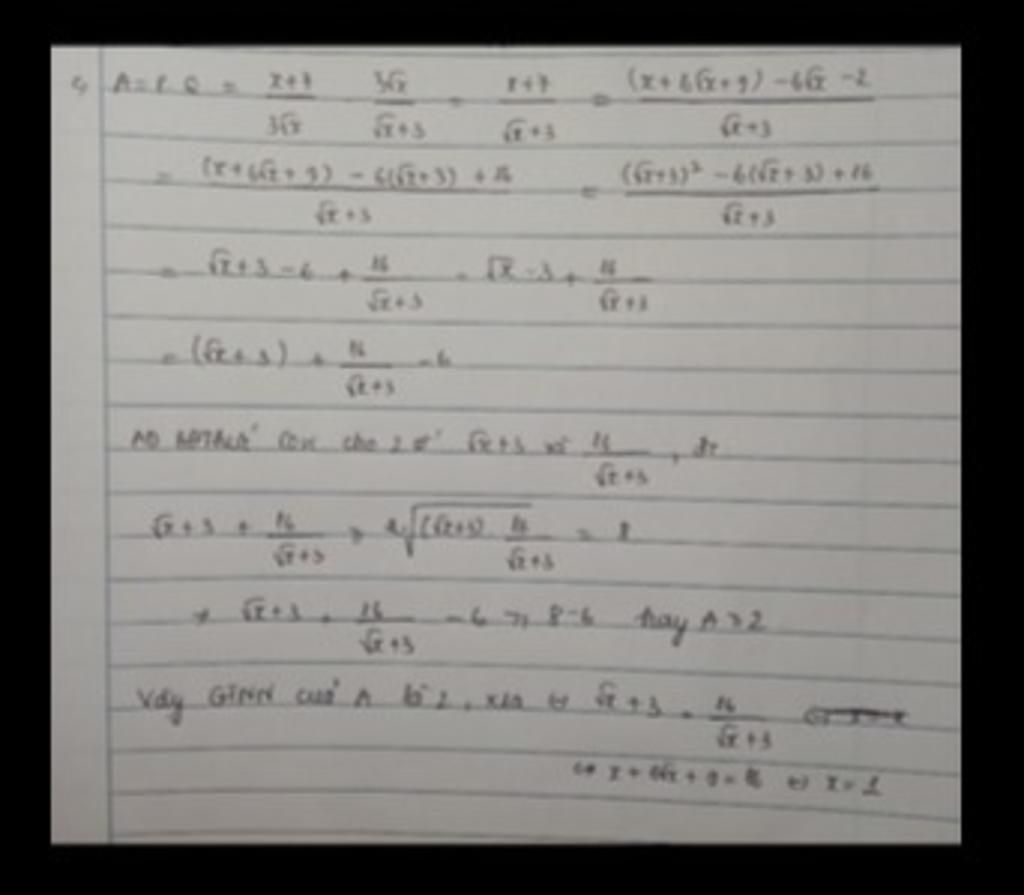 c, A = P.Q = (x+7)/(3√x) . (3√x)/(√x+3) = (x+7)/(√x+3) = ((x+6√x+9) -6√x -2)/(√x+3)
= ((x+6√x+9) - 6(√x+3) + 16)/(√x+3) = ((√x+3)² - 6(√x+3) + 16)/(√x+3)
= √x+3 - 6 + 16/(√x+3) = √x - 3 + 16/(√x+3)
= (√x+3) + 16/(√x+3) - 6
cho 2 số √x+3 và 16/(√x+3),
√x+3 + 16/(√x+3) ≥ 2√((√x+3) . 16/(√x+3)) = 8
√x+3 + 16/(√x+3) - 6 ≥ 8-6 hay A ≥ 2
Vậy GTNN của A là 2, ⇔ √x+3 = 16/(√x+3)
⇔ x + 6√x + 9 = 16 ⇔ x = 1